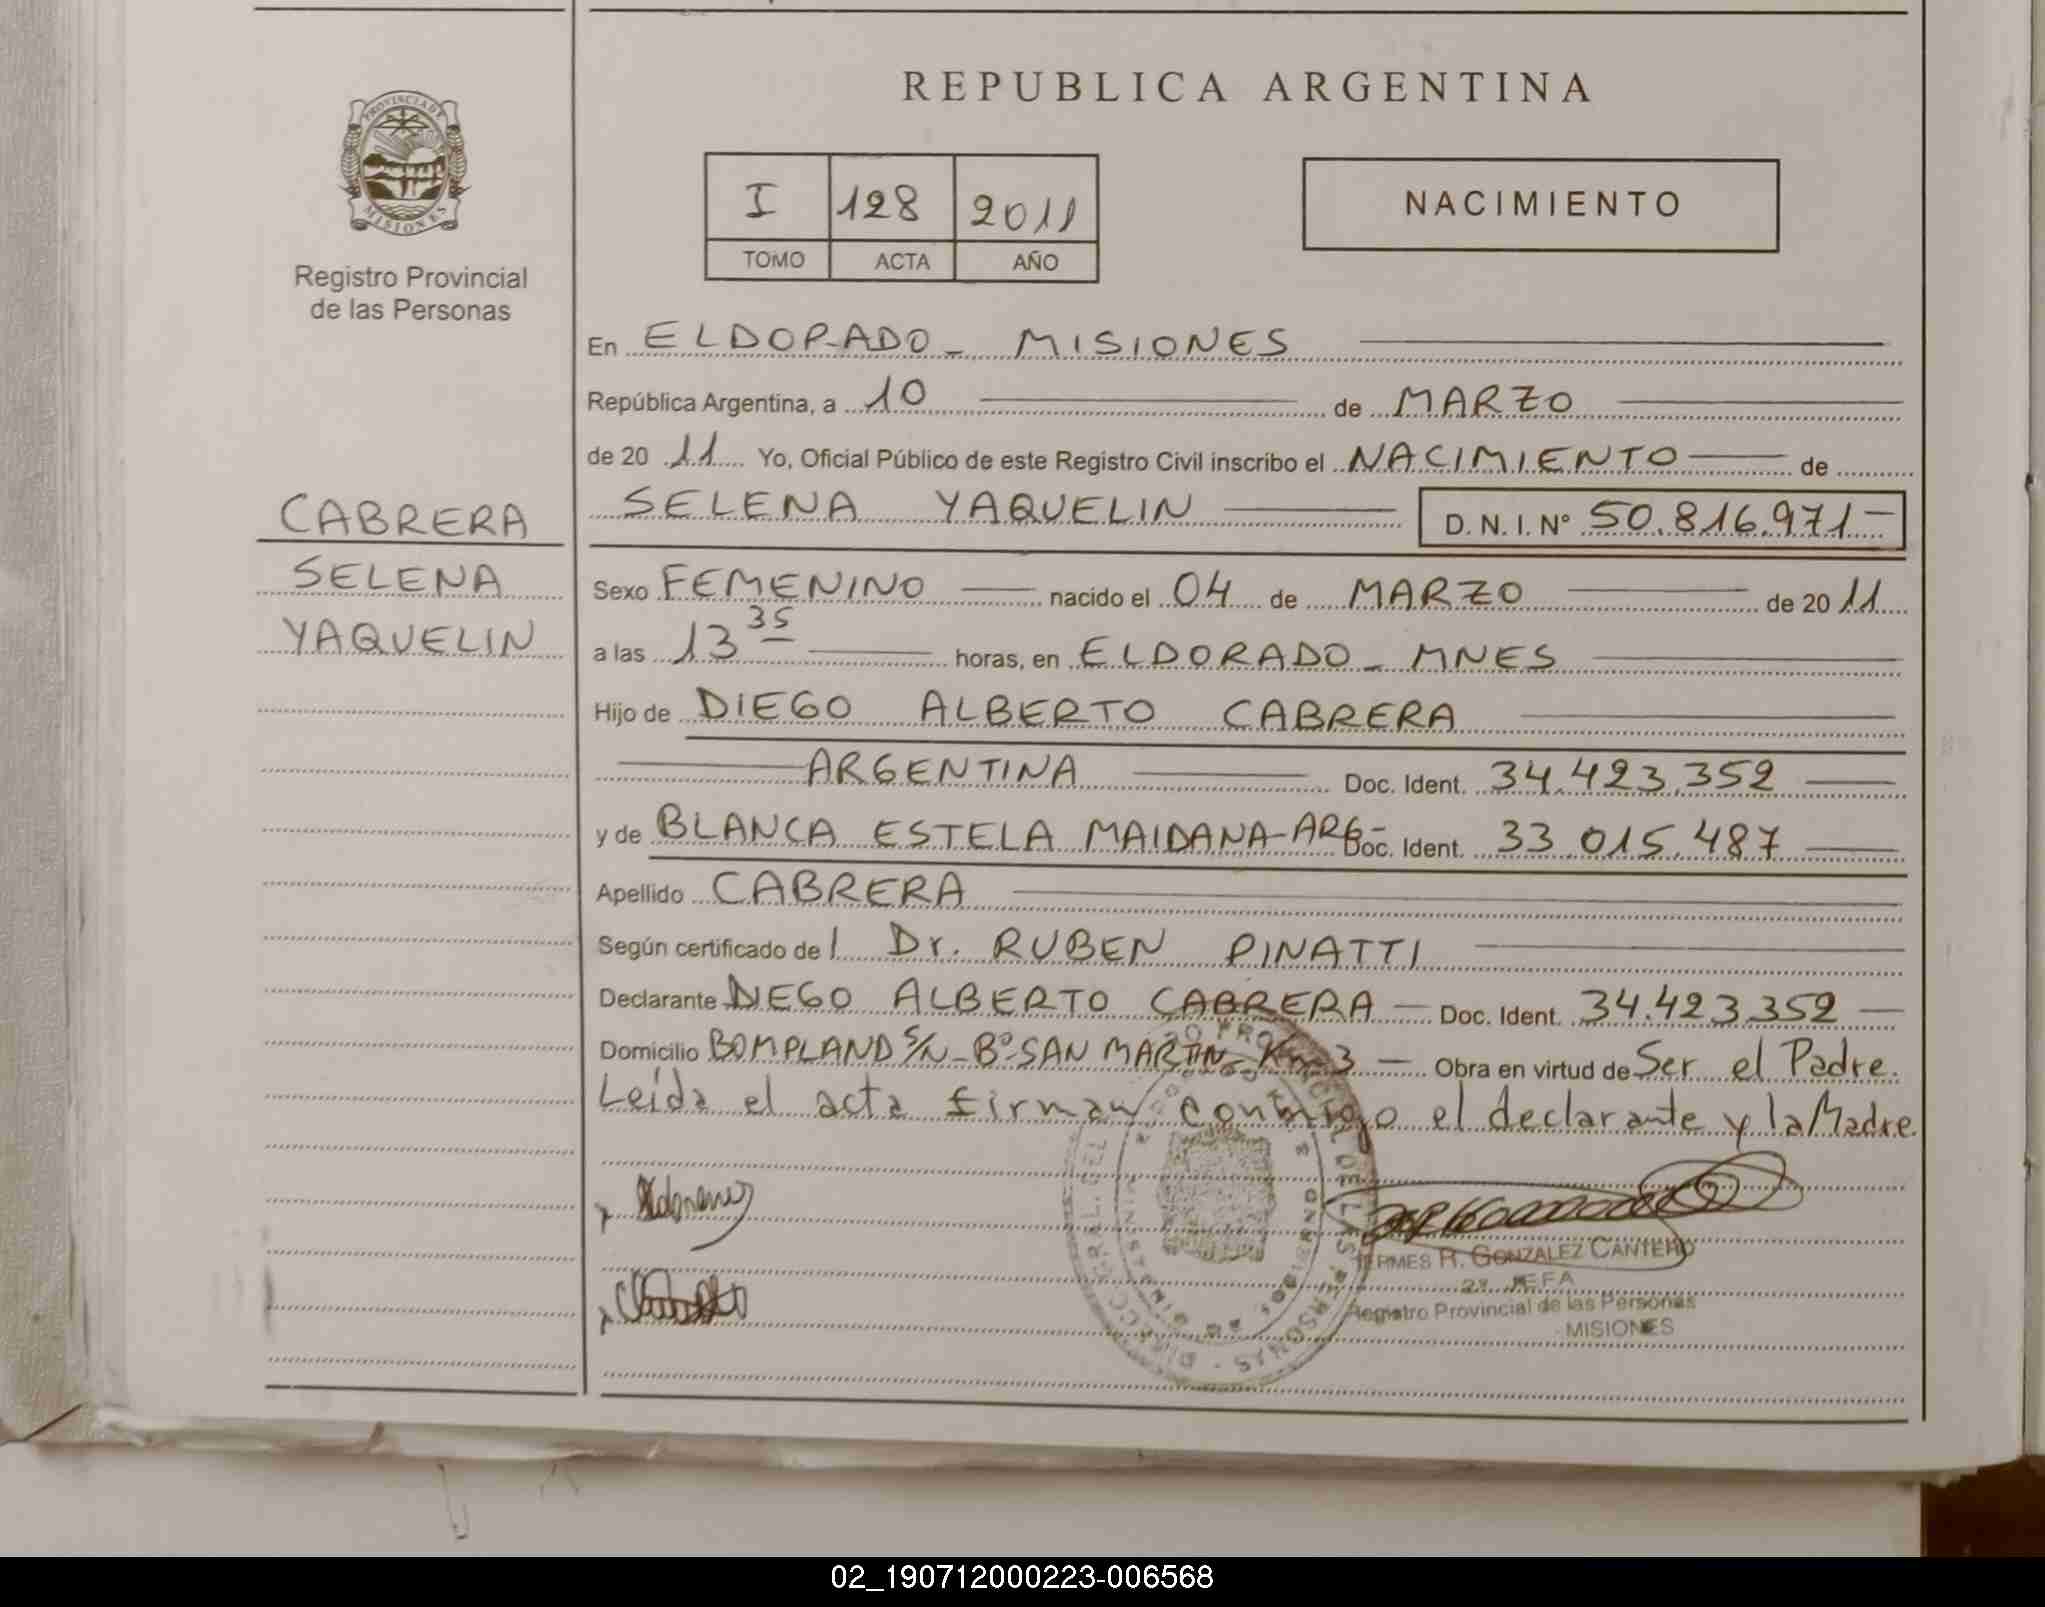 REPUBLICA ARGENTINA
PROVINCIA DE
MISIONES
Registro Provincial
de las Personas
I 128 2011
TOMO ACTA AÑO
NACIMIENTO
En ELDORADO - MISIONES
República Argentina, a 10 de MARZO
de 20 11 Yo, Oficial Público de este Registro Civil inscribo el NACIMIENTO de
CABRERA
SELENA
YAQUELIN
SELENA YAQUELIN D. N. I. Nº 50.816.971-
Sexo FEMENINO nacido el 04 de MARZO de 20 11
a las 13 35 horas, en ELDORADO - MNES
Hijo de DIEGO ALBERTO CABRERA
ARGENTINA Doc. Ident. 34.423.352
y de BLANCA ESTELA MAIDANA-ARG- Doc. Ident. 33.015.487
Apellido CABRERA
Según certificado de l Dr. RUBEN PINATTI
Declarante DIEGO ALBERTO CABRERA - Doc. Ident. 34.423.352
Domicilio BOMPLAND S/N - Bº SAN MARTIN - Km 3 - Obra en virtud de Ser el Padre.
Leída el acta firman conmigo el declarante y la Madre.
HERMES R. GONZALEZ CANTERO
2ª JEFA
Registro Provincial de las Personas
MISIONES
02_190712000223-006568